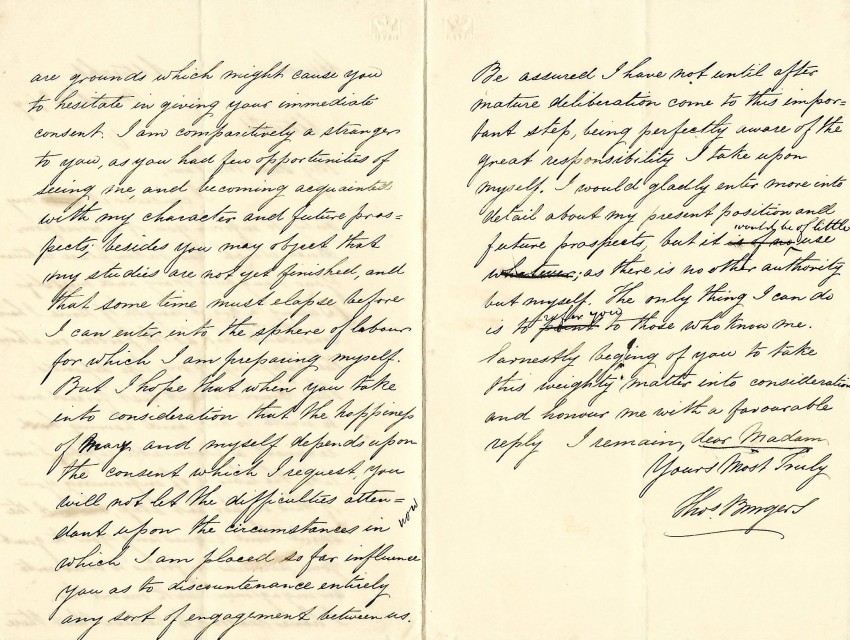 are grounds which might cause you
to hesitate in giving your immediate
consent. I am comparitively a stranger
to you, as you had few opportunities of
seeing me, and becoming acquainted
with my character and future pros=
pects; besides you may object that
my studies are not yet finished, and
that some time must elapse before
I can enter into the sphere of labour
for which I am preparing myself.
But I hope that when you take
into consideration that the happiness
of Mary and myself depends upon
the consent which I request, you
will not let the difficulties atten=
dant upon the circumstances in
which I am now placed so far influence
you as to discountenance entirely
any sort of engagement between us.
Be assured I have not until after
mature deliberation come to this impor=
tant step, being perfectly aware of the
great responsibility I take upon
myself. I would gladly enter more into
detail about my present position and
would be of little
future prospects, but it is of no use
whatever; as there is no other authority
but myself. The only thing I can do
refer you
is to point to those who know me.
Earnestly beging of you to take
this weighty matter into consideration
and honour me with a favourable
reply I remain, dear Madam
Yours Most Truly
Thos. Burgers